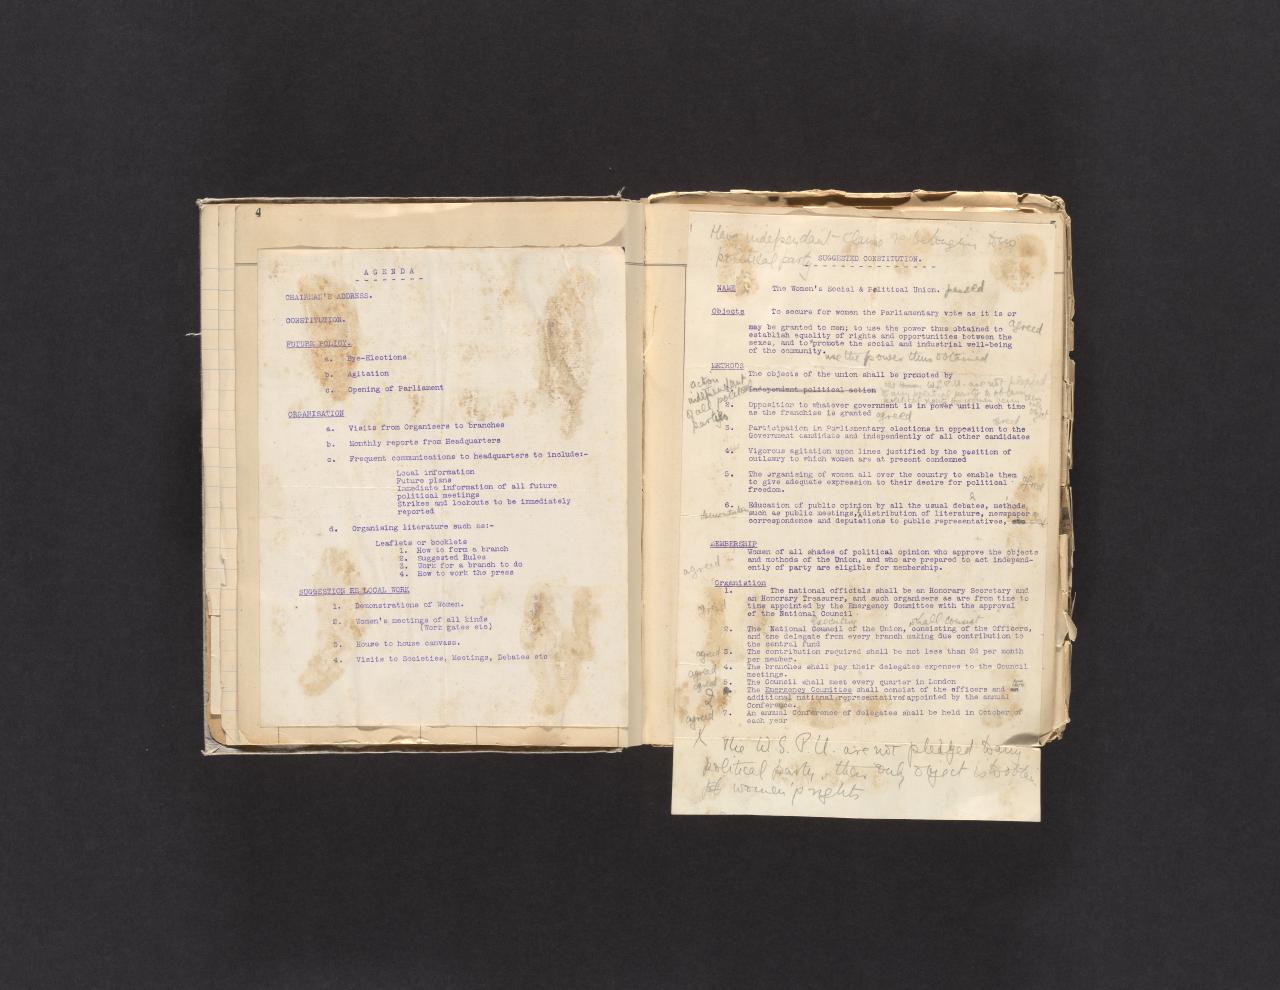 4
AGENDA
CHAIRMAN'S ADDRESS.
CONSTITUTION.
FUTURE POLICY.
a. Bye-Elections
b. Agitation
c. Opening of Parliament
ORGANISATION
a. Visits from Organisers to branches
b. Monthly reports from Headquarters
c. Frequent communications to headquarters to include:-
Local information
Future plans
Immediate information of all future
political meetings
Strikes and lockouts to be immediately
reported
d. Organising literature such as:-
Leaflets or booklets
1. How to form a branch
2. Suggested Rules
3. Work for a branch to do
4. How to work the press
SUGGESTION RE LOCAL WORK
1. Demonstrations of Women.
2. Women's meetings of all kinds
(Work gates etc)
3. House to house canvass.
4. Visits to Societies, Meetings, Debates etc
Have independant clause
political party
SUGGESTED CONSTITUTION.
NAME The Women's Social & Political Union. passed
Objects To secure for women the Parliamentary vote as it is or
may be granted to men; to use the power thus obtained to agreed
establish equality of rights and opportunities between the
sexes, and to promote the social and industrial well-being
of the community. use the power thus obtained
METHODS
The objects of the union shall be promoted by
action
independant
of all political
parties
Independent political action W.S.P.U. are not pledged
2. Opposition to whatever government is in power until such time
as the franchise is granted agreed
3. Participation in Parliamentary elections in opposition to the
Government candidate and independently of all other candidates
4. Vigorous agitation upon lines justified by the position of
outlawry to which women are at present condemned
5. The organising of women all over the country to enable them
to give adequate expression to their desire for political
freedom.
6. Education of public opinion by all the usual debates, methods
such as public meetings, distribution of literature, newspaper
correspondence and deputations to public representatives, etc
MEMBERSHIP
Women of all shades of political opinion who approve the objects
and mothods of the Union, and who are prepared to act independ-
ently of party are eligible for membership.
agreed
Organistion
1. The national officials shall be an Honorary Secretary and
an Honorary Treasurer, and such organisers as are from time to
time appointed by the Emergency Committee with the approval
of the National Council
agreed
executive shall consist
2. The National Council of the Union, consisting of the Officers,
and one delegate from every branch making due contribution to
the central fund
agreed 3. The contribution required shall be not less than 2d per month
per member.
agreed 4. The branches shall pay their delegates expenses to the Council
meetings.
agreed 5. The Council shall meet every quarter in London
6. The Emergency Committee shall consist of the officers and an
additional national representative appointed by the annual
Conference.
agreed 7. An annual Conference of delegates shall be held in October of
each year
X The W.S.P.U. are not pledged to any
political party, their only object is to obtain
women's rights